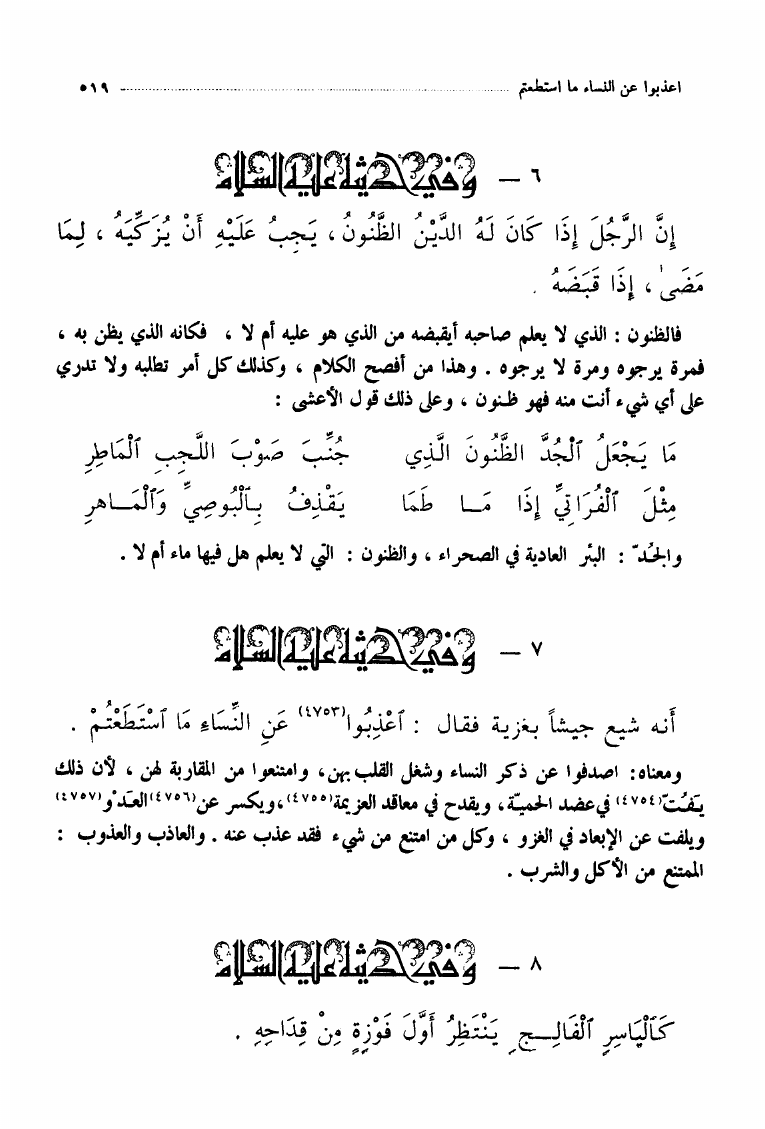 اعذبوا عن النساء ما استطعتم ٥١٩
٦ – وفي حديثه عليه السلام
إِنَّ الرَّجُلَ إِذَا كَانَ لَهُ الدَّيْنُ الظَّنُونُ، يَجِبُ عَلَيْهِ أَنْ يُزَكِّيَهُ ، لِمَا
مَضَىٰ ، إِذَا قَبَضَهُ .
فالظنون : الذي لا يعلم صاحبه أيقبضه من الذي هو عليه أم لا ، فكانه الذي يظن به ،
فمرة يرجوه ومرة لا يرجوه . وهذا من أفصح الكلام ، وكذلك كل أمر تطلبه ولا تدري
على أي شيء أنت منه فهو ظنون ، وعلى ذلك قول الأعشى :
مَا يَجْعَلُ ٱلْجُدَّ الظَّنُونَ الَّذِي جُنِّبَ صَوْبَ اللَّجِبِ ٱلْمَاطِرِ
مِثْلَ ٱلْفُرَاتِيِّ إِذَا مَا طَمَا يَقْذِفُ بِٱلْبُوصِيِّ وَٱلْمَاهِرِ
والجُدّ : البئر العادية في الصحراء ، والظنون : التي لا يعلم هل فيها ماء أم لا .
٧ – وفي حديثه عليه السلام
أَنه شيع جيشاً بغزية فقال : ٱعْذِبُوا(٤٧٥٣) عَنِ النِّسَاءِ مَا ٱسْتَطَعْتُمْ .
ومعناه: اصدفوا عن ذكر النساء وشغل القلب بهن، وامتنعوا من المقاربة لهن ، لأن ذلك
يَفُتّ(٤٧٥٤) في عضد الحميّة، ويقدح في معاقد العزيمة(٤٧٥٥)،ويكسر عن(٤٧٥٦)العَدْو(٤٧٥٧)
ويلفت عن الإبعاد في الغزو ، وكل من امتنع من شيء فقد عذب عنه . والعاذب والعذوب :
الممتنع من الأكل والشرب .
٨ – وفي حديثه عليه السلام
كَٱلْيَاسِرِ ٱلْفَالِجِ يَنْتَظِرُ أَوَّلَ فَوْزَةٍ مِنْ قِدَاحِهِ .